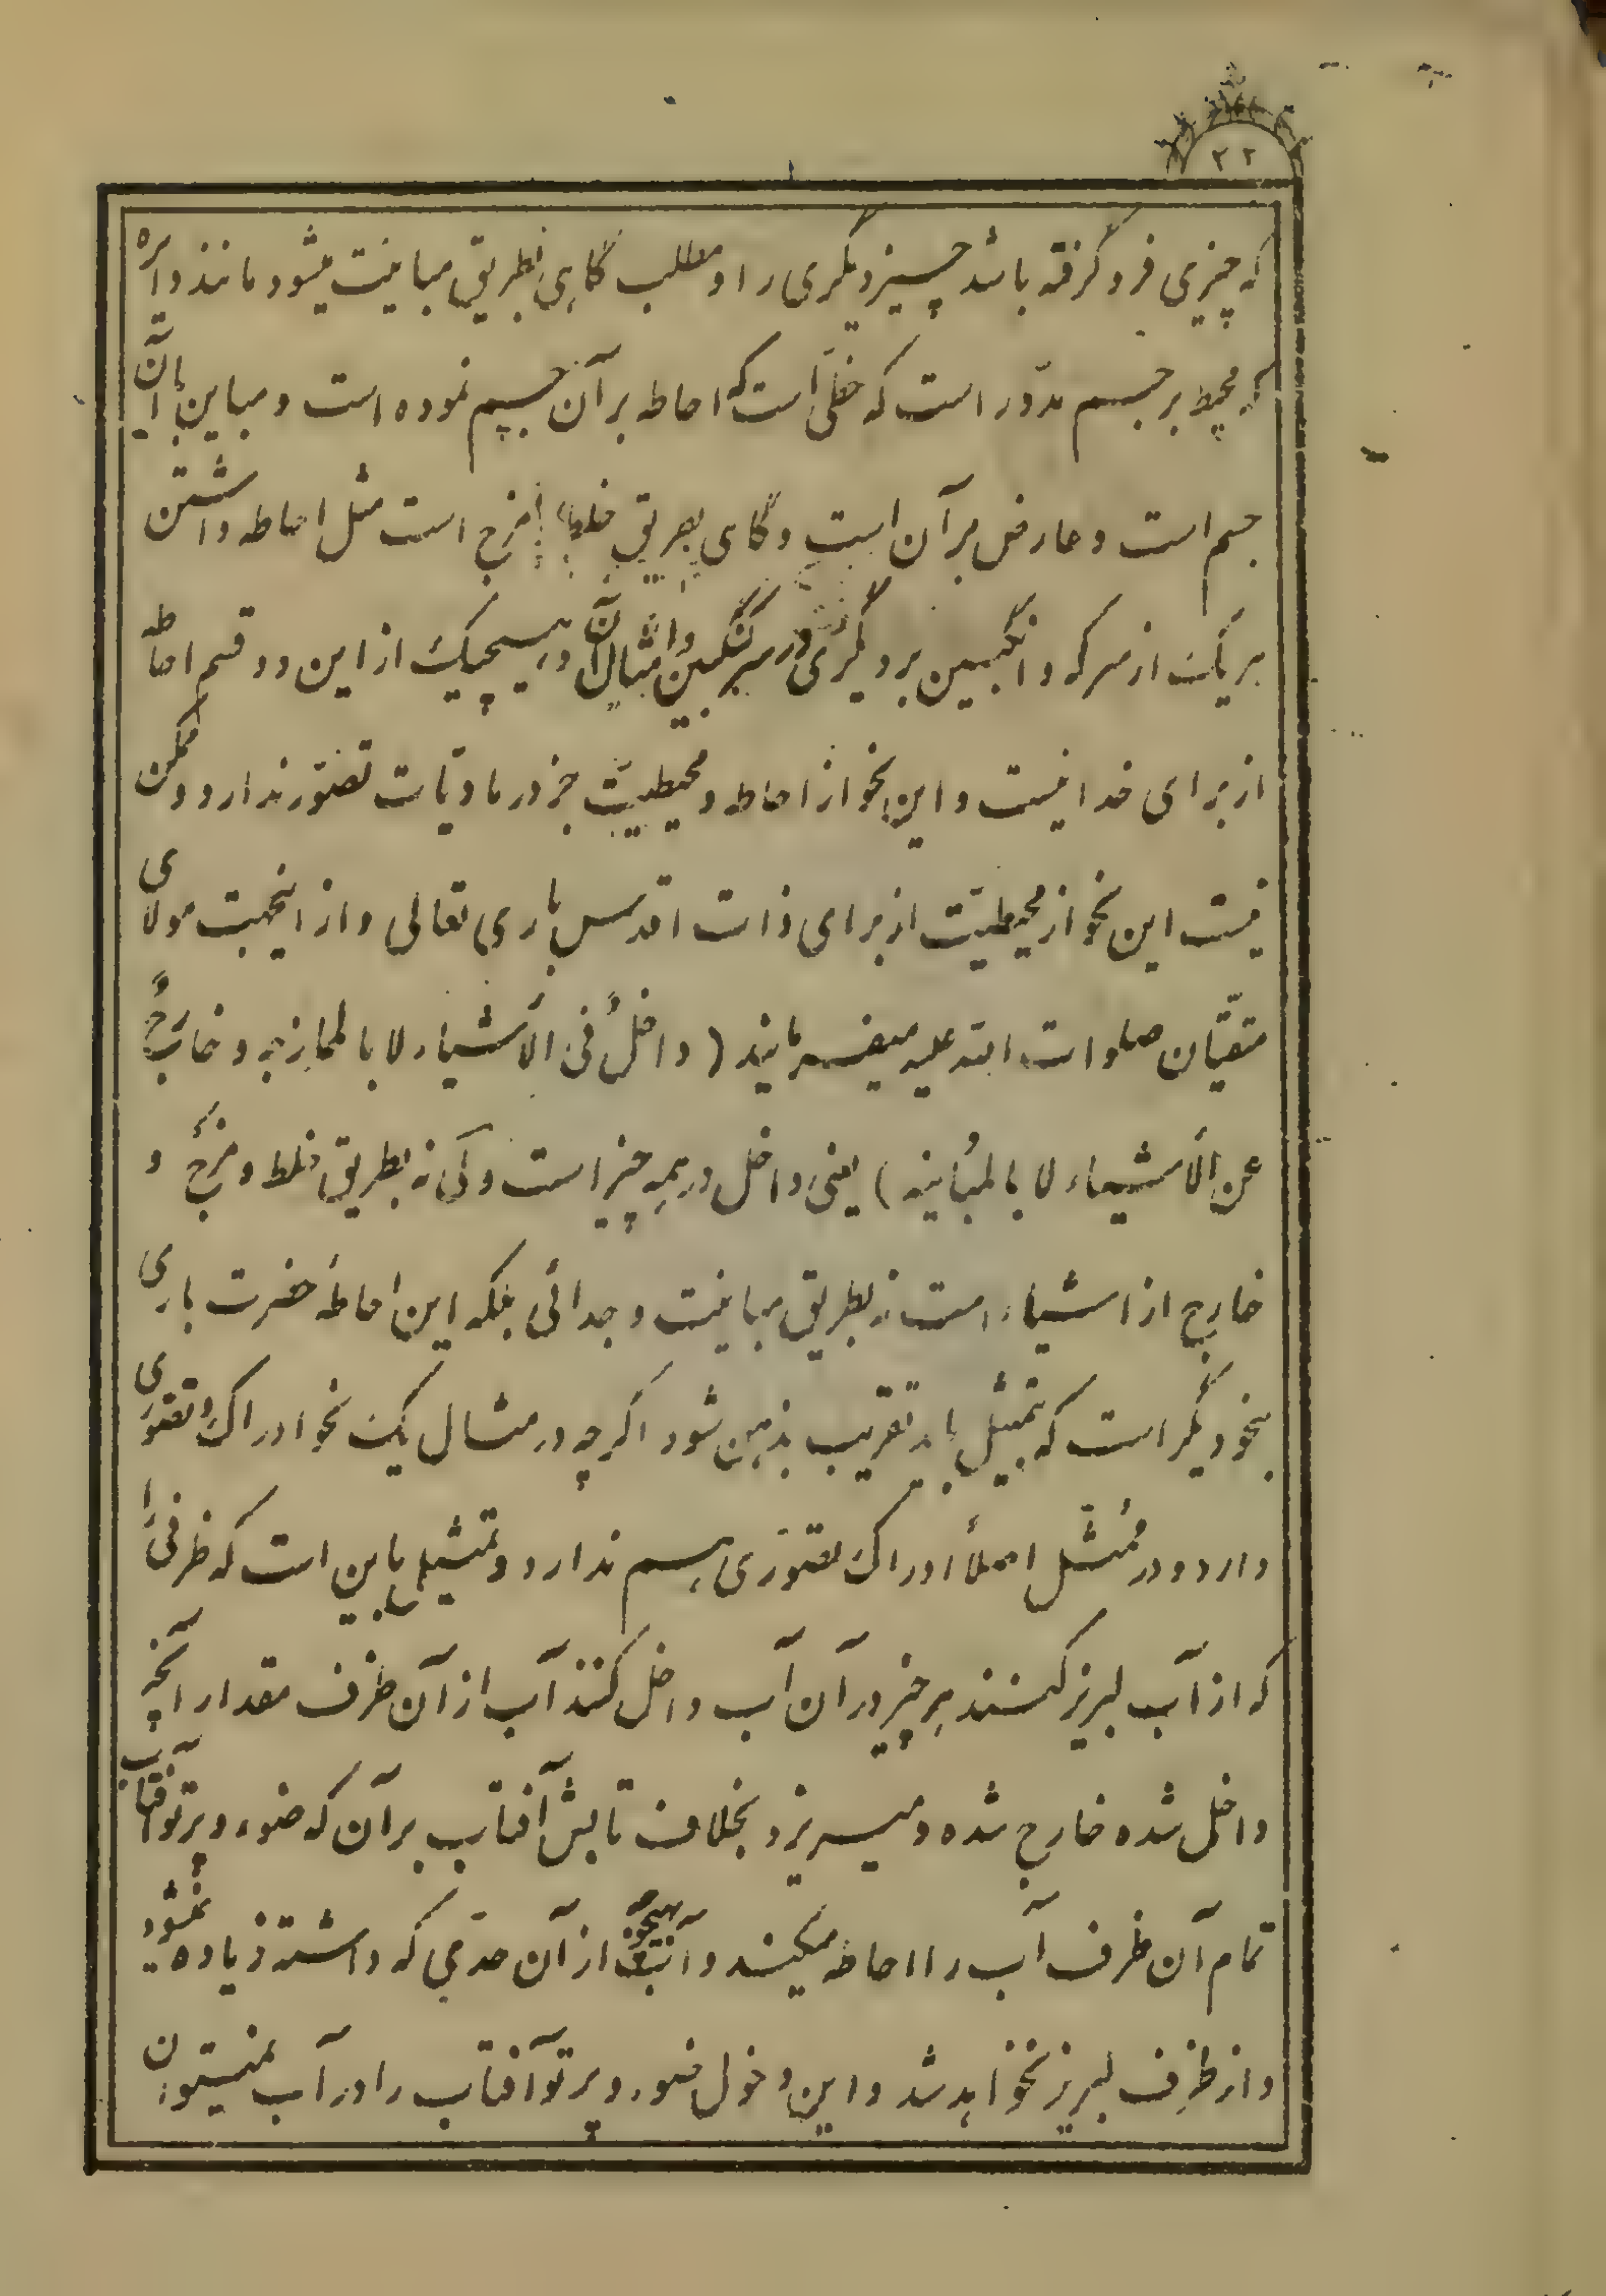 ۲۲
که چیزی فرو گرفته باشد چیز دیگری را و مطلب گاهی بطریق مباینت میشود مانند دایره
که محیط بر جسم مدّور است که خطّی است که احاطه بر آن جسم نموده است و مباین با آن
جسم است و عارض بر آن است و گاهی بطریق خلط و مزج است مثل احاطه داشتن
هر یک از سرکه و انگبین بر دیگری در سرکنگبین و امثال آن و هیچیک از این دو قسم احاطه
از برای خدا نیست و این نحو از احاطه و محیطیّت جز در مادیّات تصوّر ندارد و ممکن
نیست این نحو از محیطیّت از برای ذات اقدس باری تعالی و از اینجهت مولای
متقیّان صلوات الله علیه میفرمایند (داخلٌ فی الأشیاء لا بالممازجه و خارجٌ
عن الأشیاء لا بالمُباینه) یعنی داخل در همه چیز است ولی نه بطریق خلط و مزج و
خارج از اشیاء است نه بطریق مباینت و جدائی بلکه این احاطهٔ حضرت باری
بنحو دیگر است که بتمثیل باید تقریب بذهن شود اگر چه در مثال یک نحو ادراک و تصوّری
دارد و در ممُثّل اصلاً ادراک تصوّری هم ندارد و تمثیل باین است که ظرفی را
که از آب لبریز کنند هر چیز در آن آب داخل کنند آب از آن ظرف مقدار آنچه
داخل شده خارج شده و میریزد بخلاف تابش آفتاب بر آن که ضوء و پرتو آفتاب
تمام آن ظرف آب را احاطه میکند و آب بهیچوجه از آن حدّی که داشته زیاده نمیشود
و از ظرف لبریز نخواهد شد و این دخول ضوء و پرتو آفتاب را در آب نمیتوان